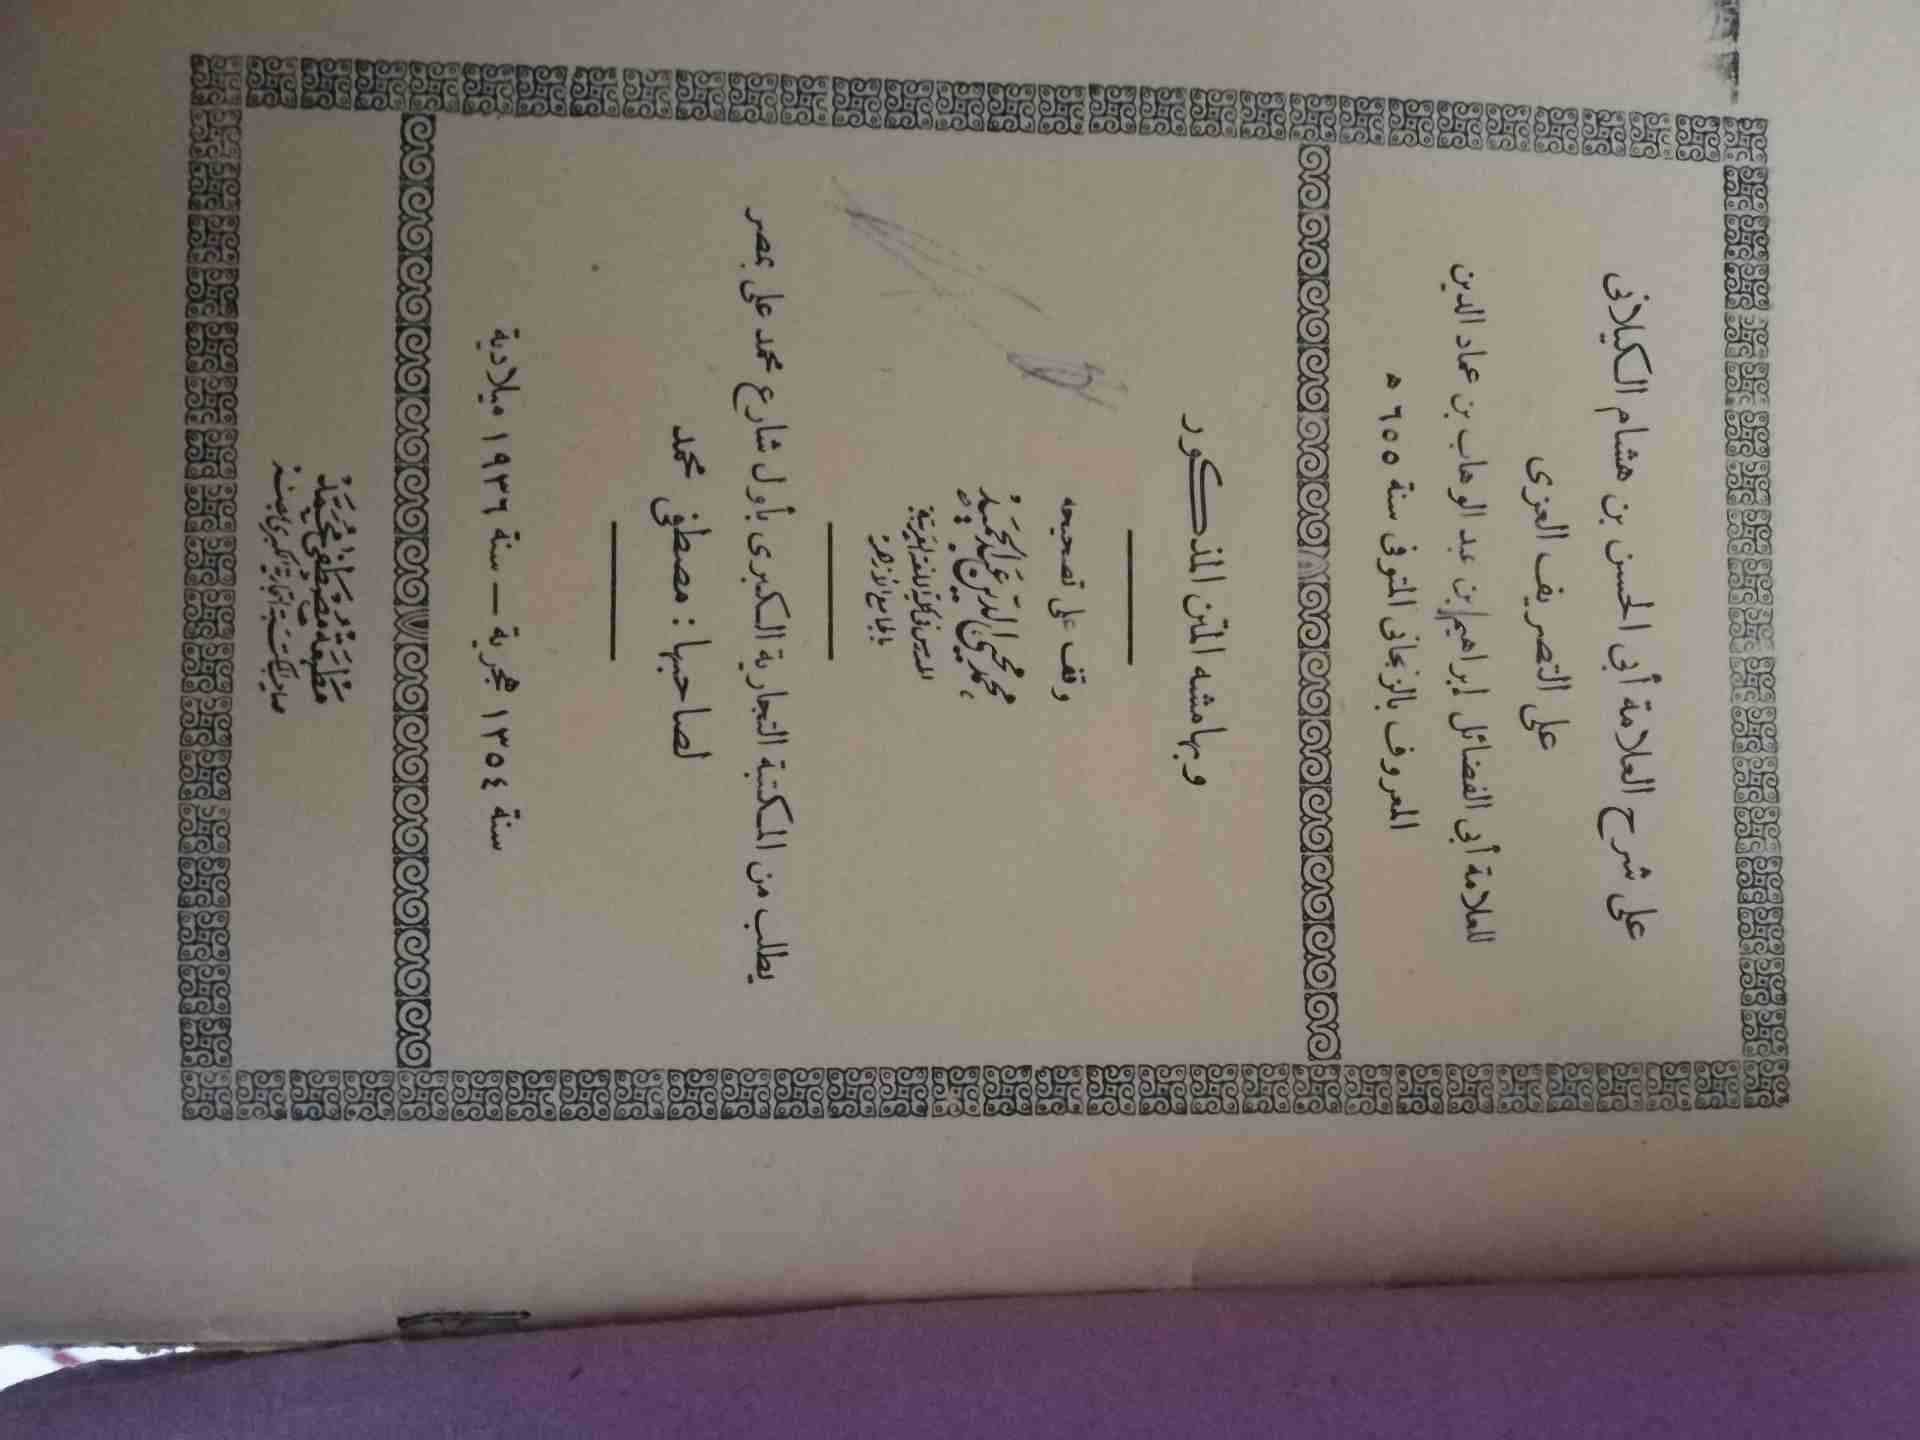 على شرح العلامة أبى الحسن بن هشام الكيلانى
على التصريف العزى
للعلامة أبى الفضائل إبراهيم بن عبد الوهاب بن عماد الدين
المعروف بالزنجانى المتوفى سنة ٦٥٥ ه
وبهامشه المتن المذكور
وقف على تصحيحه
محمد محيى الدين عبد الحميد
المدرس فى كلية اللغة العربية
بالجامع الأزهر
يطلب من المكتبة التجارية الكبرى بأول شارع محمد على بمصر
لصاحبها : مصطفى محمد
سنة ١٣٥٤ هجرية — سنة ١٩٣٦ ميلادية
مطبعة مصطفى محمد
صاحب المكتبة التجارية الكبرى بمصر